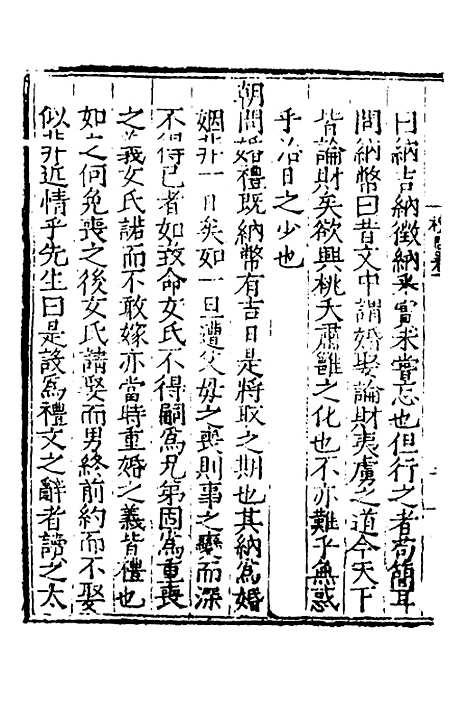 曰納吉納徵納采實未嘗忘也但行之者苟簡耳
問納幣曰昔文中謂婚娶論財夷虜之道今天下
皆論財矣欲興桃夭肅雝之化也不亦難乎無惑
乎治日之少也
朝問婚禮既納幣有吉日是將取之期也其納為婚
姻非一日矣如一旦遭父母之喪則事之變而深
不得已者如致命女氏不得嗣為兄弟固為重喪
之義女氏諾而不敢嫁亦當時重婚之義皆禮也
如之何免喪之後女氏請娶而男終前約而不娶
似非近情乎先生曰是設為禮文之辭者謗之太